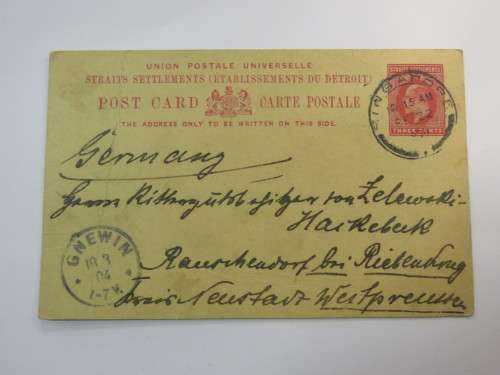 UNION POSTALE UNIVERSELLE
STRAITS SETTLEMENTS (ETABLISSEMENTS DU DETROIT)
POST CARD CARTE POSTALE
THE ADDRESS ONLY TO BE WRITTEN ON THIS SIDE.
STRAITS SETTLEMENTS
THREE CENTS
SINGAPORE
AM
Germany
Herrn Rittergutsbesitzer von Zelewski-
Hackebeck
Rauschendorf bei Riebenkrug
Kreis Neustadt Westpreussen
GNEWIN
18 3
04
1-7V.